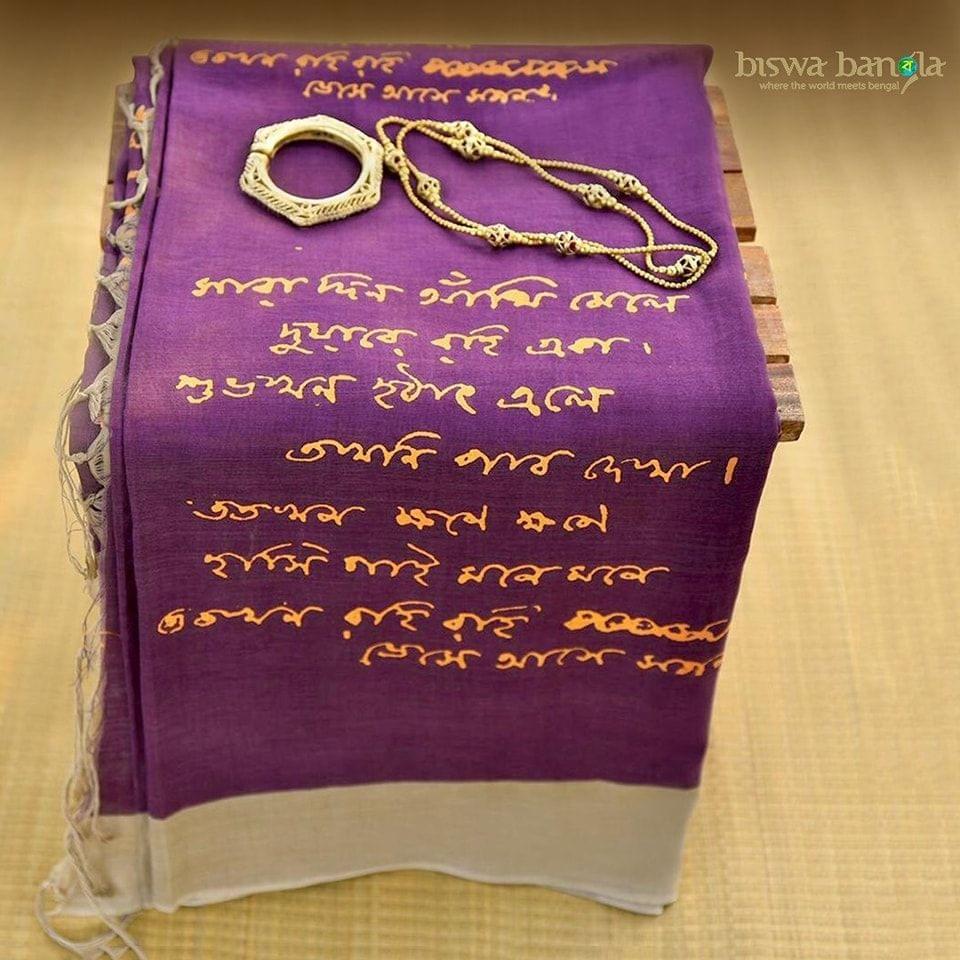 biswa bangla
where the world meets bengal
ততখন রহি রহি
ভেসে আসে সুগন্ধ।
সারা দিন আঁখি মেলে
দুয়ারে রহি একা।
শুভখন হঠাৎ এলে
তখনি পাব দেখা।
ততখন ক্ষণে ক্ষণে
হাসি গাই মনে মনে
ততখন রহি রহি
ভেসে আসে